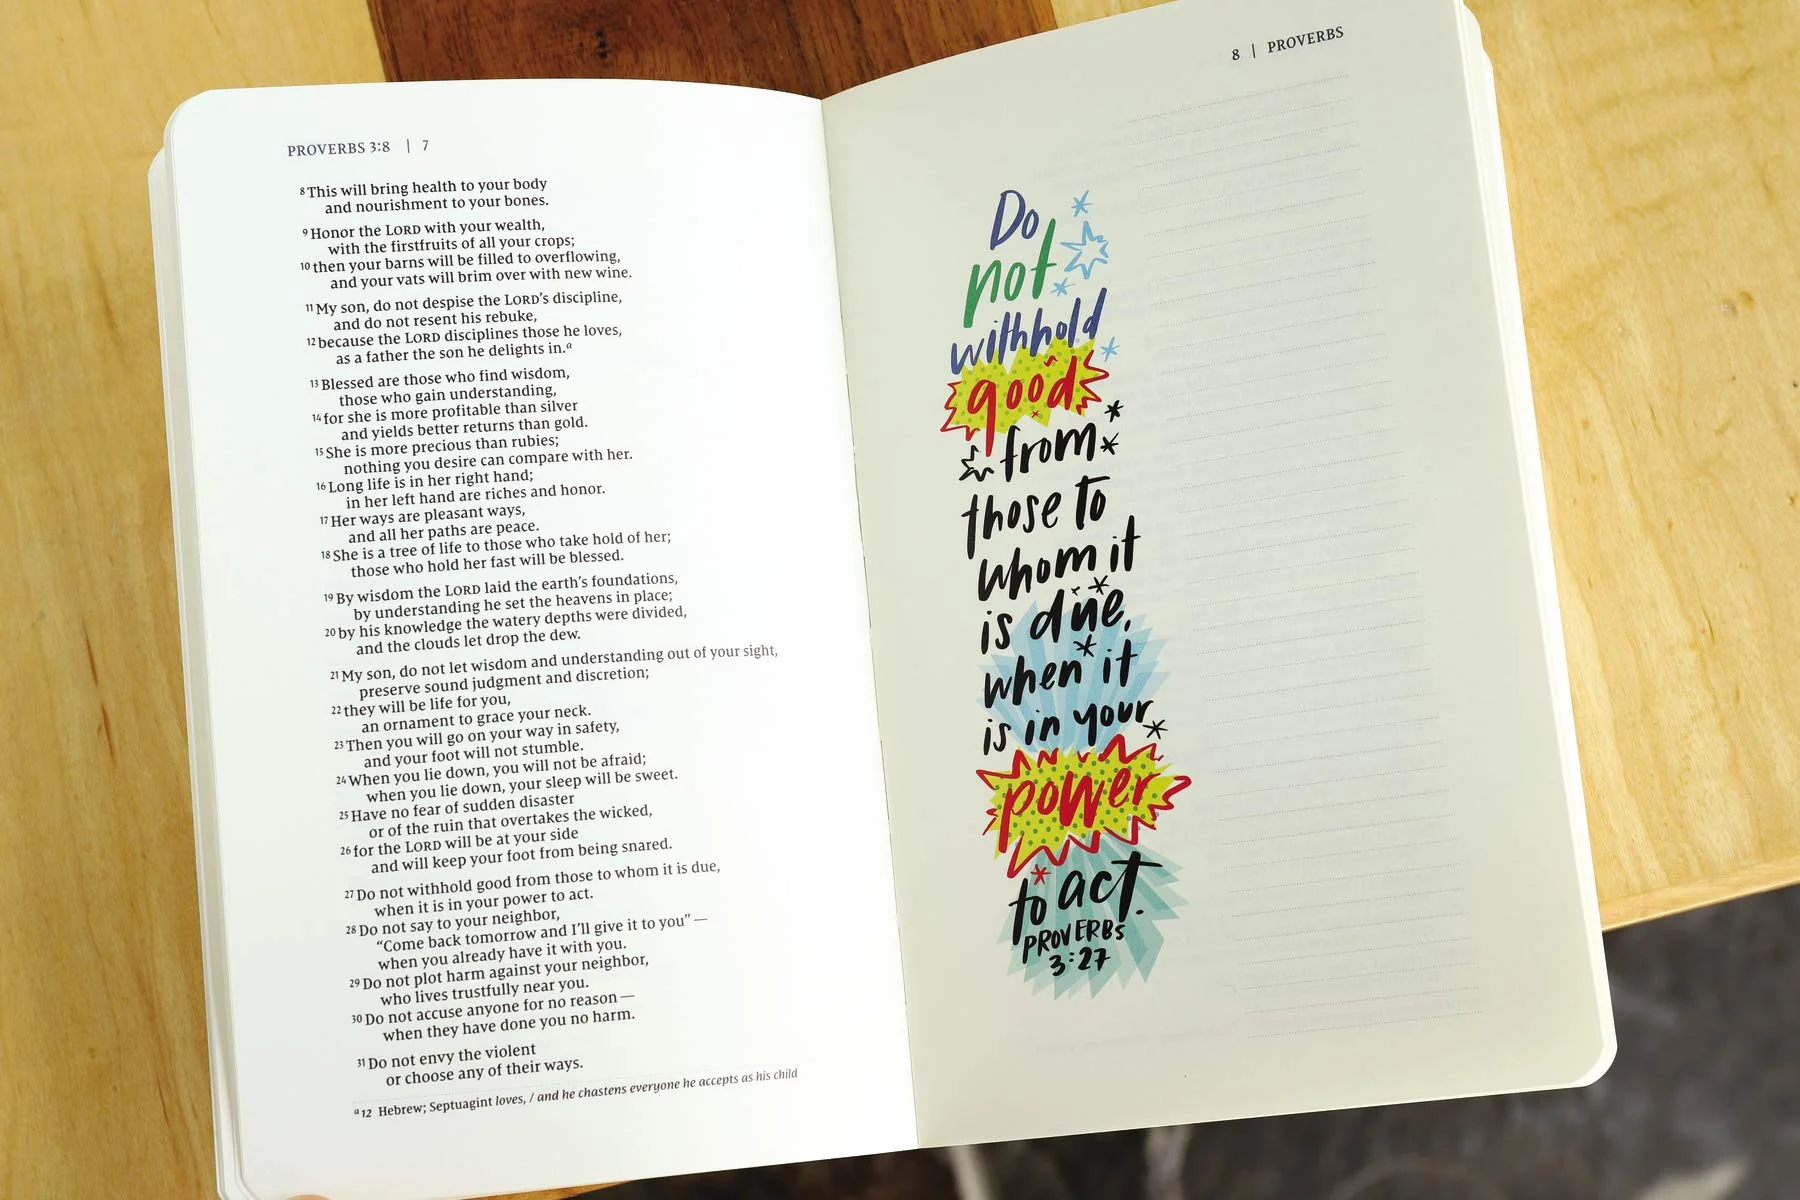 PROVERBS 3:8 | 7
8 This will bring health to your body
and nourishment to your bones.
9 Honor the LORD with your wealth,
with the firstfruits of all your crops;
10 then your barns will be filled to overflowing,
and your vats will brim over with new wine.
11 My son, do not despise the LORD's discipline,
and do not resent his rebuke,
12 because the LORD disciplines those he loves,
as a father the son he delights in.a
13 Blessed are those who find wisdom,
those who gain understanding,
14 for she is more profitable than silver
and yields better returns than gold.
15 She is more precious than rubies;
nothing you desire can compare with her.
16 Long life is in her right hand;
in her left hand are riches and honor.
17 Her ways are pleasant ways,
and all her paths are peace.
18 She is a tree of life to those who take hold of her;
those who hold her fast will be blessed.
19 By wisdom the LORD laid the earth's foundations,
by understanding he set the heavens in place;
20 by his knowledge the watery depths were divided,
and the clouds let drop the dew.
21 My son, do not let wisdom and understanding out of your sight,
preserve sound judgment and discretion;
22 they will be life for you,
an ornament to grace your neck.
23 Then you will go on your way in safety,
and your foot will not stumble.
24 When you lie down, you will not be afraid;
when you lie down, your sleep will be sweet.
25 Have no fear of sudden disaster
or of the ruin that overtakes the wicked,
26 for the LORD will be at your side
and will keep your foot from being snared.
27 Do not withhold good from those to whom it is due,
when it is in your power to act.
28 Do not say to your neighbor,
“Come back tomorrow and I'll give it to you” —
when you already have it with you.
29 Do not plot harm against your neighbor,
who lives trustfully near you.
30 Do not accuse anyone for no reason —
when they have done you no harm.
31 Do not envy the violent
or choose any of their ways.
a 12 Hebrew; Septuagint loves, / and he chastens everyone he accepts as his child
8 | PROVERBS
Do
not
withhold
good
from
those to
whom it
is due,
when it
is in your
power
to act.
PROVERBS
3:27